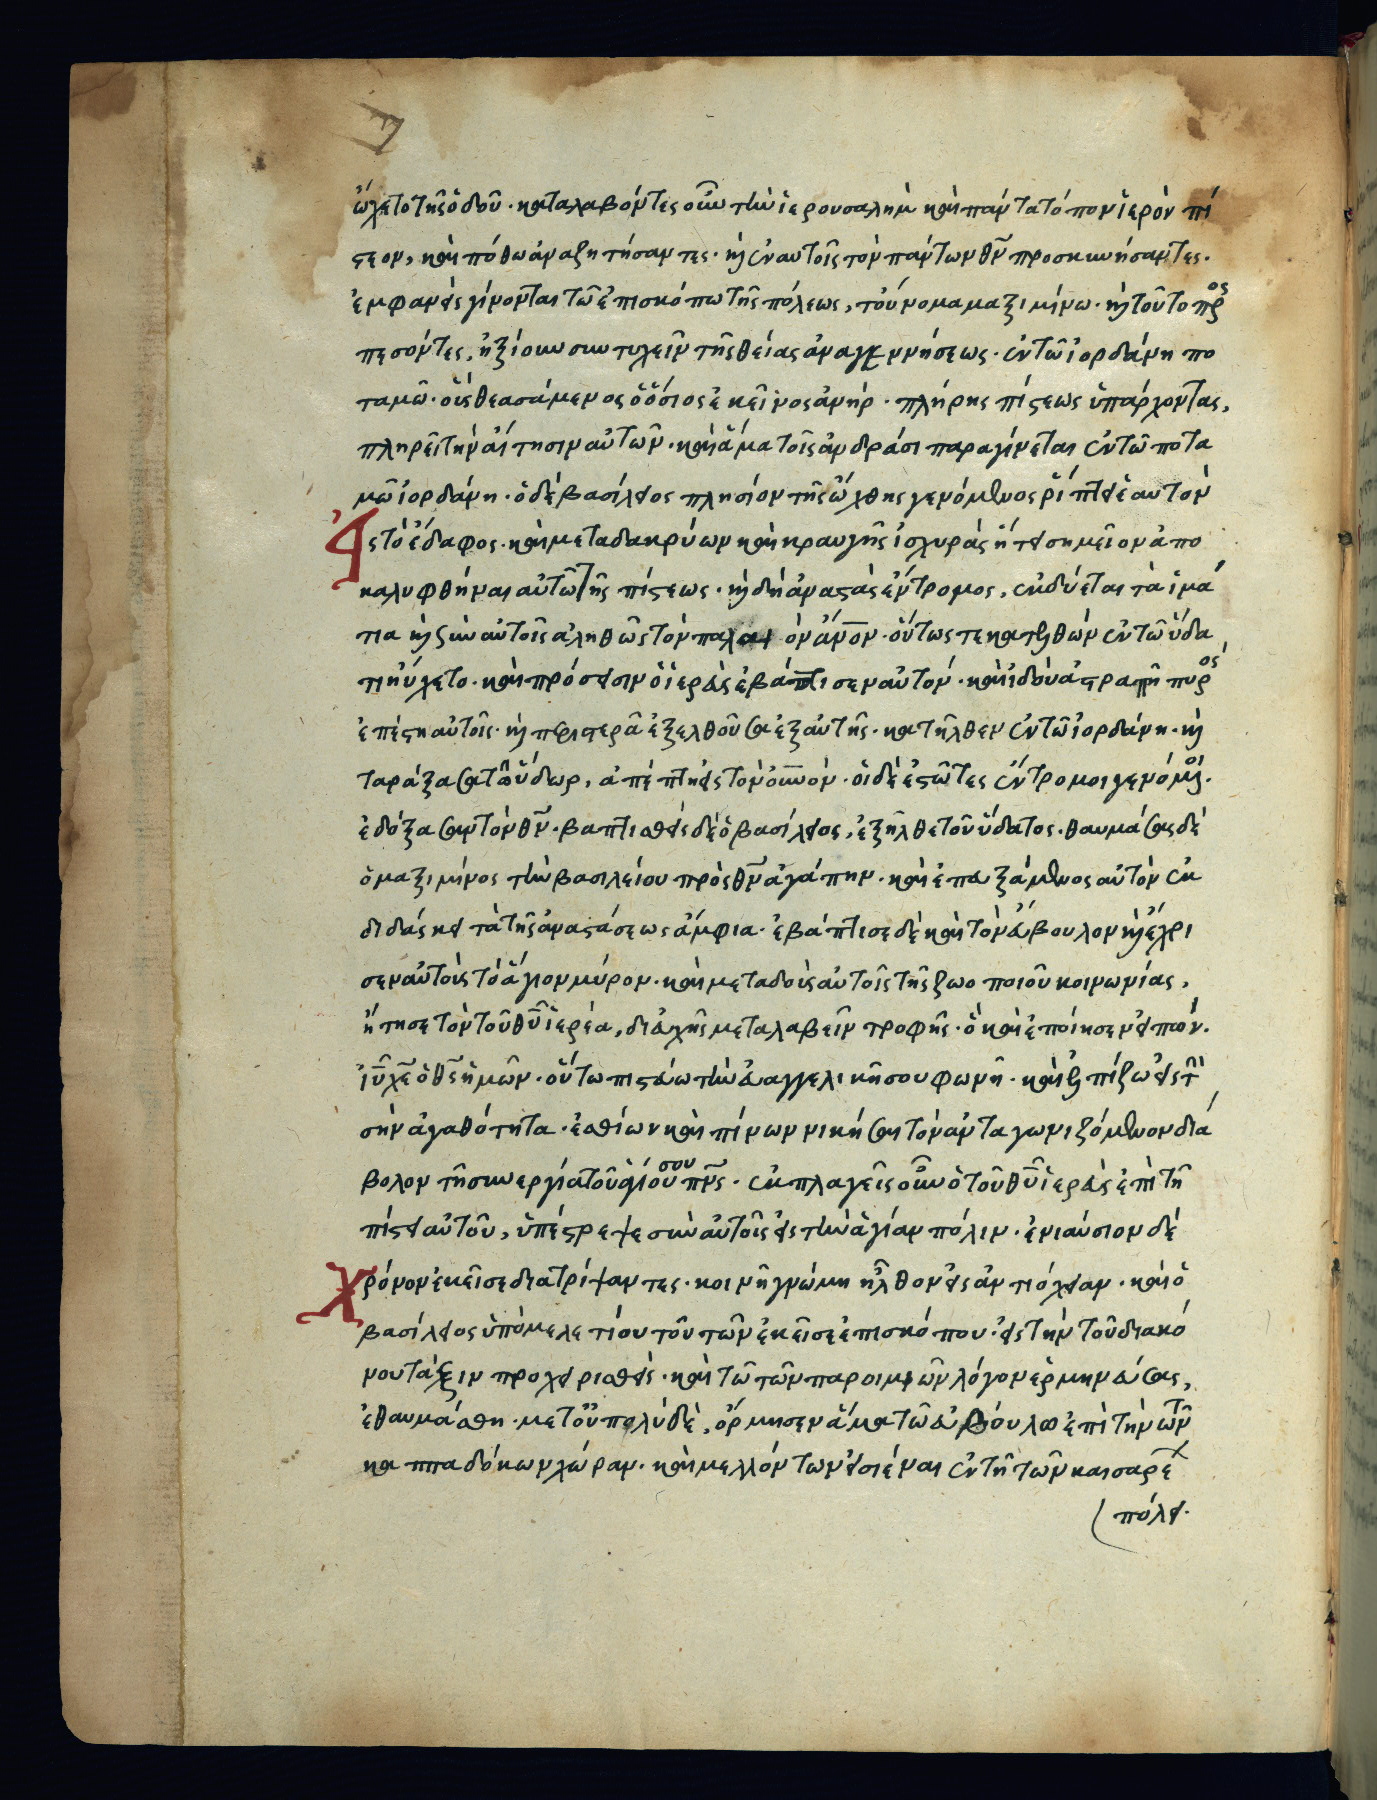 ὤχετο τῆς ὁδοῦ· καταλαβόντες οὖν τὴν ἱερουσαλὴμ καὶ πάντα τόπον ἱερὸν πί
στει, καὶ πόθω ἀναζητήσαντες· κἀν αὐτοῖς τὸν πάντων θν προσκυνήσαντες·
ἐμφανεῖς γίνονται τῶ ἐπισκόπω τῆς πόλεως, τοὔνομα μαξιμίνω· καὶ τοῦτο προς
πεσόντες, ἠξίουν συντυχεῖν τῆς θείας ἀναγεννήσεως· ἐν τῶ ἰορδάνη πο
ταμῶ· οὓς θεασάμενος ὁ ὅσιος ἐκεῖνος ἀνήρ· πλήρης πίστεως ὑπάρχοντας,
πληρεῖ τὴν αἴτησιν αὐτῶν· καὶ ἅμα τοῖς ἀνδράσι παραγίνεται ἐν τῶ ποτα
μῶ ἰορδάνη· ὁ δὲ βασίλειος πλησίον τῆς ὄχθης γενόμενος ῥίπτει ἑαυτὸν
εἰς τὸ ἔδαφος· καὶ μετὰ δακρύων καὶ κραυγῆς ἰσχυρᾶς ἤτει σημεῖον ἀπο
καλυφθῆναι αὐτῶ τῆς πίστεως· καὶ δὴ ἀναστὰς ἔντρομος, ἐκδύεται τὰ ἱμά
τια καὶ σὺν αὐτοῖς ἀληθῶς τὸν παλαιὸν ἄνον· οὕτως τε κατελθὼν ἐν τῶ ὕδα
τι ηὔχετο· καὶ πρόσεισιν ὁ ἱερεὺς ἐβάπτισεν αὐτόν· καὶ ἰδοὺ ἀστραπὴ πυρός
ἐπέστη αὐτοῖς· καὶ περιστερᾶ ἐξελθοῦσα ἐξ αὐτῆς· κατῆλθεν ἐν τῶ ἰορδάνη· καὶ
ταράξασα τὸ ὕδωρ, ἀπέπτη εἰς τὸν οὐνον· οἱ δὲ ἑστῶτες ἔντρομοι γενόμενοι·
ἐδόξασαν τὸν θν· βαπτισθεὶς δὲ ὁ βασίλειος, ἐξῆλθε τοῦ ὕδατος· θαυμάσας δὲ
ὁ μαξιμίνος τὴν βασιλείου πρὸς θν ἀγάπην· καὶ ἐπευξάμενος αὐτὸν ἐκ
διδάσκει τὰ τῆς ἀναστάσεως ἄμφια· ἐβάπτισε δὲ καὶ τὸν εὔβουλον καὶ ἔχρι
σεν αὐτοὺς τὸ ἅγιον μύρον· καὶ μεταδοὺς αὐτοῖς τῆς ζωοποιοῦ κοινωνίας,
ἤτησε τὸν τοῦ θυ ἱερέα, δι' εὐχῆς μεταλαβεῖν τροφῆς· ὃ καὶ ἐποίησεν εἰπών·
ἰυ χε ὁ θς ἡμῶν· οὕτω πιστεύω τὴν εὐαγγελικῆ σου φωνῆ· καὶ ἐλπίζω εἰς τὴν
σὴν ἀγαθότητα· ἐσθίων καὶ πίνων νικῆσαι τὸν ἀνταγωνιζόμενον διά
βολον τῆ συνεργία τοῦ ἁγίου σου πνς· ἐκπλαγεῖς οὖν ὁ τοῦ θυ ἱερεὺς ἐπὶ τῆ
πίστει αὐτοῦ, ὑπέστρεψε σὺν αὐτοῖς εἰς τὴν ἁγίαν πόλιν· ἐνιαύσιον δὲ
χρόνον ἐκεῖσε διατρίψαντες· κοινῆ γνώμη ἦλθον εἰς ἀντιόχειαν· καὶ ὁ
βασίλειος ὑπὸ μελετίου τοῦ τῶν ἐκεῖσε ἐπισκόπου· εἰς τὴν τοῦ διακό
νου τάξιν προχειρισθείς· καὶ τῶ τῶν παροιμιῶν λόγον ἑρμηνεύσας,
ἐθαυμάσθη· μετοῦ πολὺ δὲ, ὅρμησεν ἅμα τῶ εὐβούλω ἐπὶ τὴν τῶν
καππαδόκων χώραν· καὶ μελλόντων εἰσιέναι ἐν τῆ τῶν καισαρέων
πόλει·